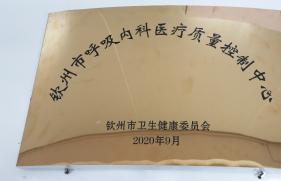 钦州市呼吸内科医疗质量控制中心
钦州市卫生健康委员会
2020年9月